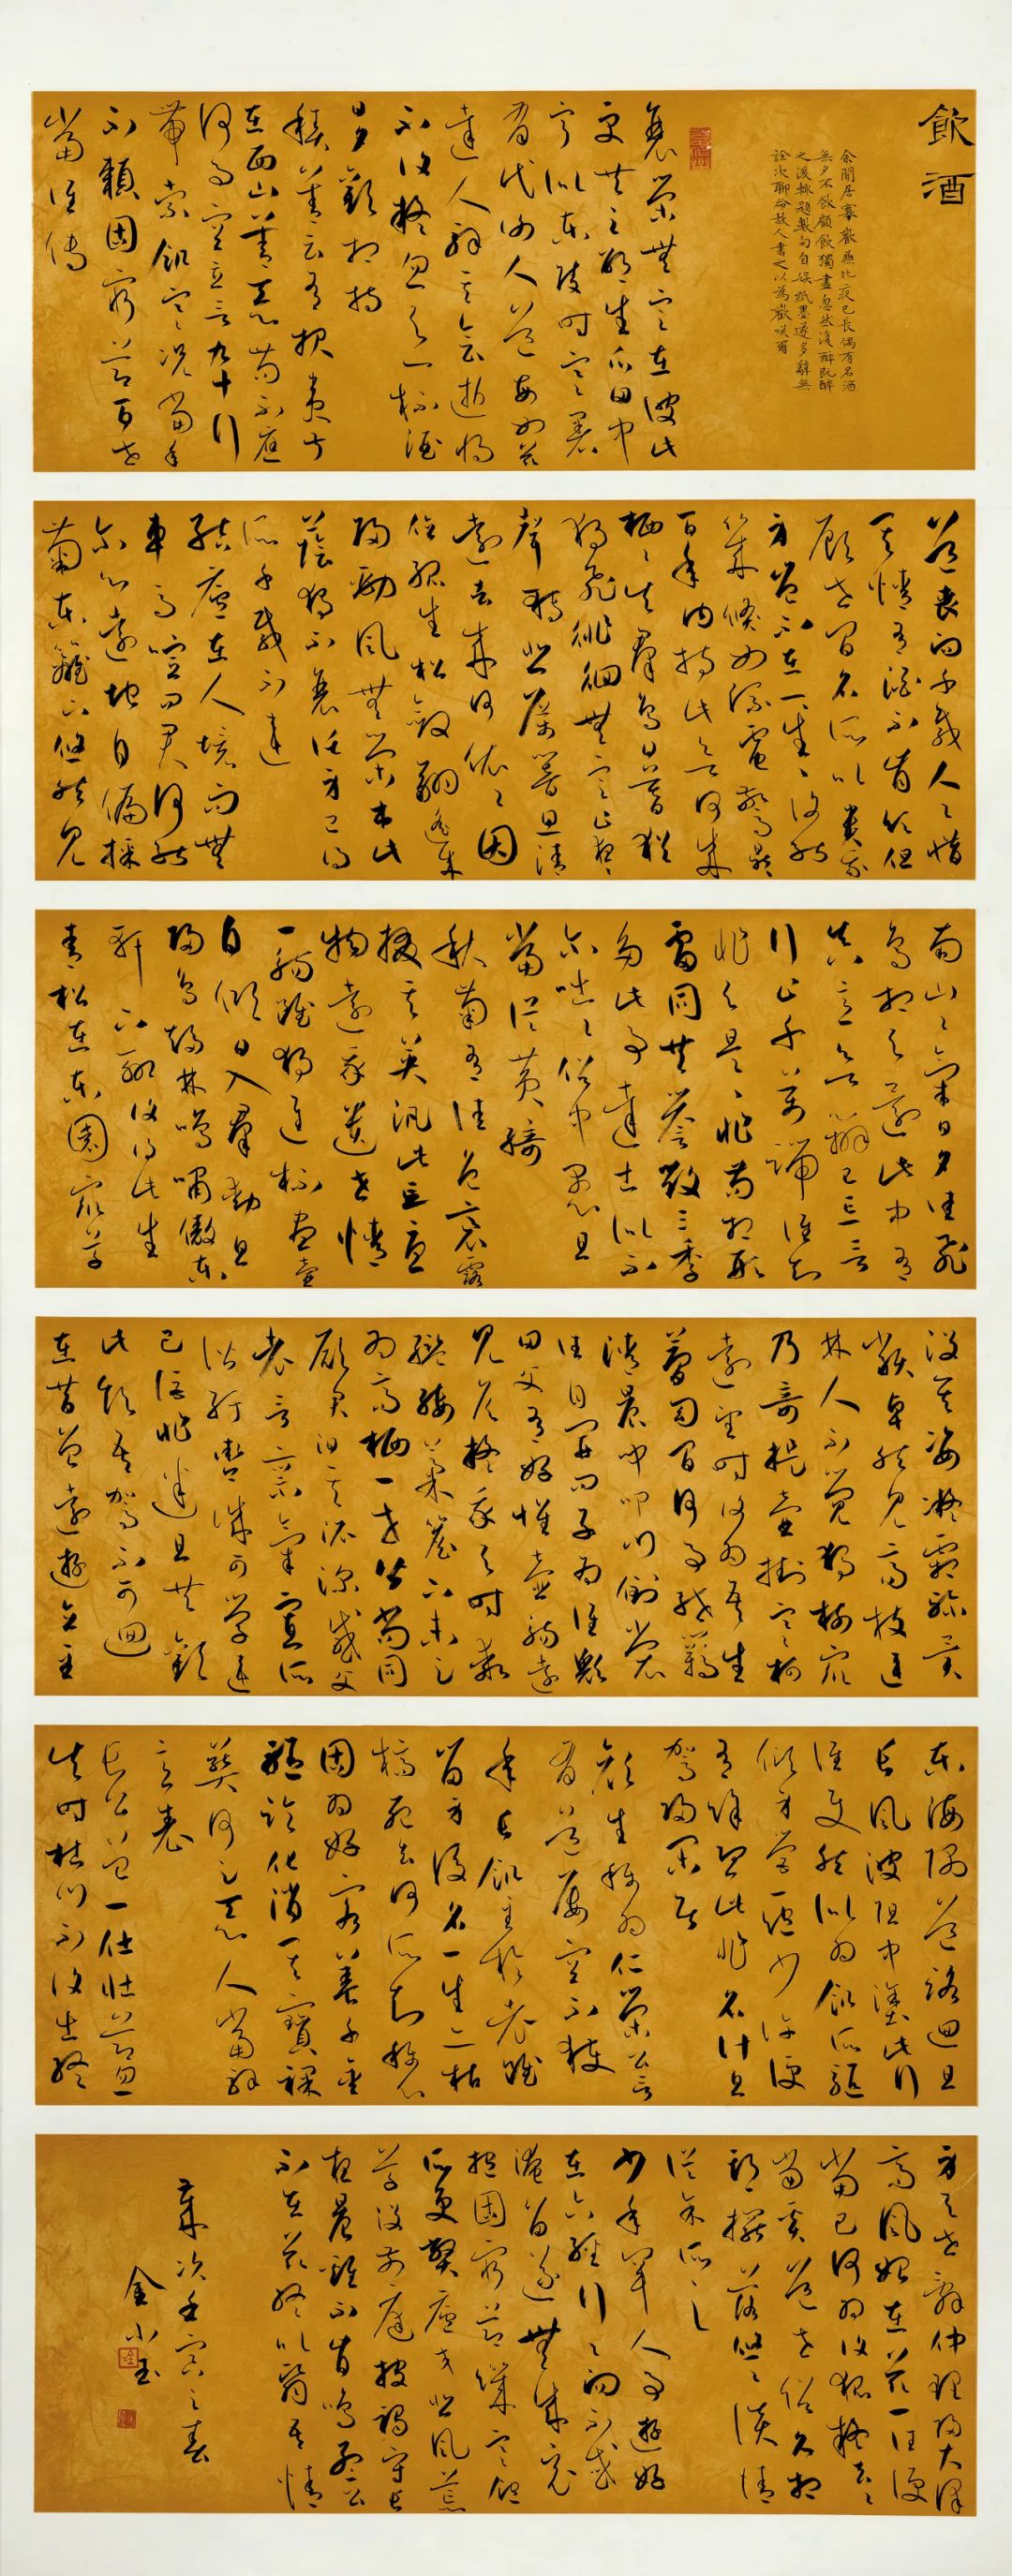 飲酒
余閒居寡歡兼比夜已長偶有名酒
無夕不飲顧影獨盡忽然復醉既醉
之後輒題數句自娛紙墨遂多辭無
詮次聊命故人書之以為歡笑爾
衰榮無定在彼此
更共之邵生瓜田中
寧似東陵時寒暑
有代謝人道每如茲
達人解其會逝將
不復疑忽與一樽酒
日夕歡相持
積善云有報夷叔
在西山善惡苟不應
何事空立言九十行
帶索飢寒況當年
不賴固窮節百世
當誰傳
道喪向千載人人惜
其情有酒不肯飲但
顧世間名所以貴我
身豈不在一生一生復能
幾倏如流電驚鼎
百年內持此欲何成
栖栖失群鳥日暮猶
獨飛徘徊無定止夜夜
聲轉悲厲響思清
遠去來何依依因
值孤生松斂翮遙來
歸勁風無榮木此
蔭獨不衰託身已得
所千載不違
結廬在人境而無
車馬喧問君何能
爾心遠地自偏採
菊東籬下悠然見
南山山氣日夕佳飛
鳥相與還此中有
真意欲辨已忘言
行止千萬端誰知
非與是是非苟相形
雷同共譽毀三季
多此事達士似不
爾咄咄俗中愚且
當從黃綺
秋菊有佳色裛露
掇其英汎此忘憂
物遠我遺世情
一觴雖獨進杯盡壺
自傾日入群動息
歸鳥趨林鳴嘯傲東
軒下聊復得此生
青松在東園眾草
沒其姿凝霜殄異
類卓然見高枝連
林人不覺獨樹眾
乃奇提壺掛寒柯
遠望時復為吾生
夢幻間何事紲羈
清晨聞叩門倒裳
往自開問子為誰歟
田父有好懷壺觴遠
見候疑我與時乖
繿縷茅簷下未足
為高栖一世皆尚同
願君汩其泥深感父
老言稟氣寡所
諧紆轡誠可學違
己詎非迷且共歡
此飲吾駕不可迴
在昔曾遠遊直至
東海隅道路迴且
長風波阻中塗此行
誰使然似為飢所驅
傾身營一飽少許便
有餘恐此非名計息
駕歸閑居
顏生稱為仁榮公言
有道屢空不獲
年長飢至於老雖
留身後名一生亦枯
槁死去何所知稱心
固為好客養千金
軀臨化消其寶裸
葬何必惡人當解
意表
長公曾一仕壯節忽
失時杜門不復出終
身與世辭仲理歸大澤
高風始在茲一往便
當已何為復狐疑去去
當奚道世俗久相
欺擺落悠悠談請
從余所之
少年罕人事遊好
在六經行行向不惑
淹留遂無成竟
抱固窮節飢寒飽
所更弊廬交悲風荒
草沒前庭披褐守長
夜晨雞不肯鳴孟公
不在茲終以翳吾情
歲次壬寅之春
金小玉